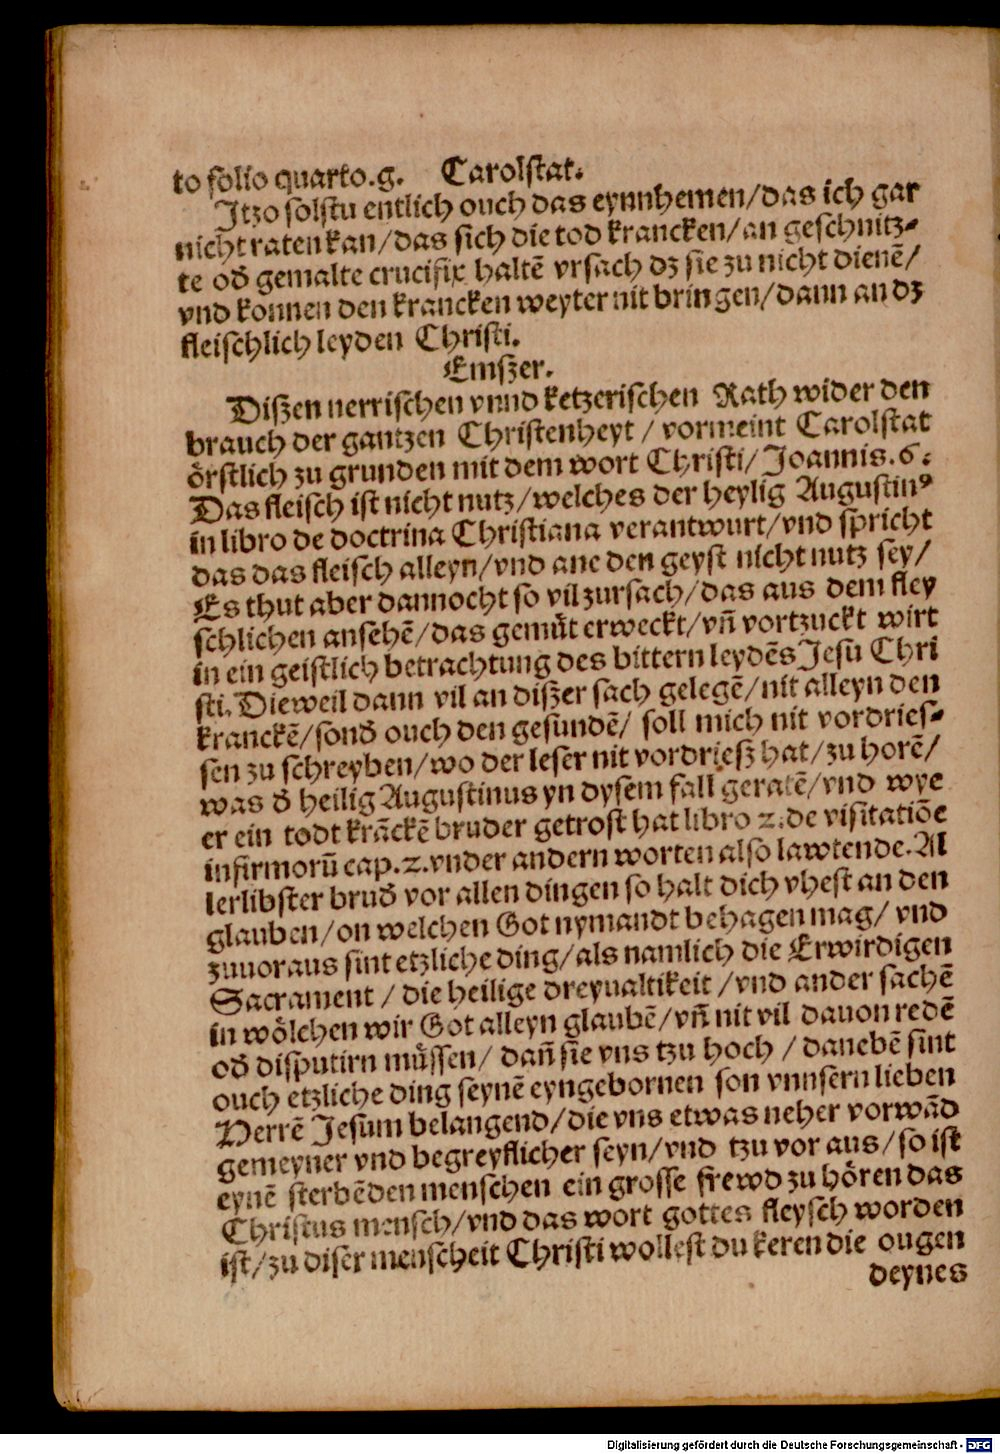 to folio quarto.g. Carolstat.
Itzo solstu entlich ouch das eynnhemen/das ich gar
nicht raten kan/das sich die tod krancken/an geschnitz-
te od̕ gemalte crucifix haltē vrsach dz sie zu nicht dienē/
vnd konnen den krancken weyter nit bringen/dann an dz
fleischlich leyden Christi.
Emszer.
Diszen nerrischen vnnd ketzerischen Rath wider den
brauch der gantzen Christenheyt / vormeint Carolstat
örstlich zu grunden mit dem wort Christi/ Joannis.6.
Das fleisch ist nicht nutz/welches der heylig Augustinꝰ
in libro de doctrina Christiana verantwurt/vnd spricht
das das fleisch alleyn/vnd ane den geyst nicht nutz sey/
Es thut aber dannocht so vil zursach/das aus dem fley
schlichen ansehē/das gemüt erweckt/vn̄ vortzuckt wirt
in ein geistlich betrachtung des bittern leydēs Jesu Chri
sti. Dieweil dann vil an diszer sach gelegē/nit alleyn den
kranckē/sond̕ ouch den gesundē/ soll mich nit vordries-
sen zu schreyben/wo der leser nit vordriesz hat/zu horē/
was d̕ heilig Augustinus yn dysem fall geratē/vnd wye
er ein todt krāckē bruder getrost hat libro 2.de visitatiōe
infirmorū cap.2.vnder andern worten also lawtende.Al
lerlibster brud̕ vor allen dingen so halt dich vhest an den
glauben/on welchen Got nymandt behagen mag/ vnd
zuuoraus sint etzliche ding/als namlich die Erwirdigen
Sacrament / die heilige dreyualtikeit /vnd ander sachē
in wölchen wir Got alleyn glaubē/vn̄ nit vil dauon redē
od̕ disputirn müssen/ dan̄ sie vns tzu hoch / danebē sint
ouch etzliche ding seynē eyngebornen son vnnsern lieben
Herrē Jesum belangend/die vns etwas neher vorwād
gemeyner vnd begreyflicher seyn/vnd tzu vor aus/so ist
eynē sterbēden menschen ein grosse frewd zu hören das
Christus mensch/vnd das wort gottes fleysch worden
ist/zu diser menscheit Christi wollest du keren die ougen
deynes
Digitalisierung gefördert durch die Deutsche Forschungsgemeinschaft - DFG